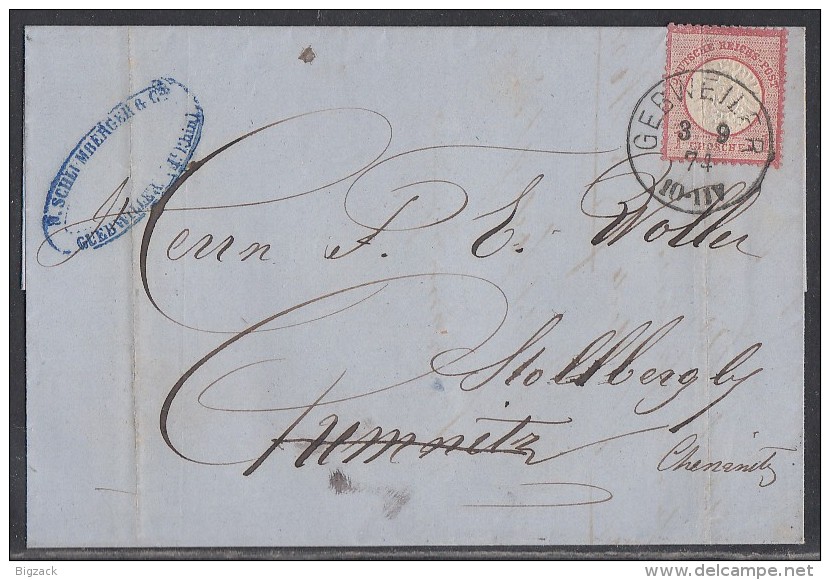 N. SCHLUMBERGER & Cie
GUEBWILLER (Ht Rhin)
DEUTSCHE REICHS-POST
1 GROSCHEN
GEBWEILER
3 9
74
10-11V
Herrn F. E. Woller
Stollberg b/
Chemnitz
Chemnitz
Bigzack
www.delcampe.net